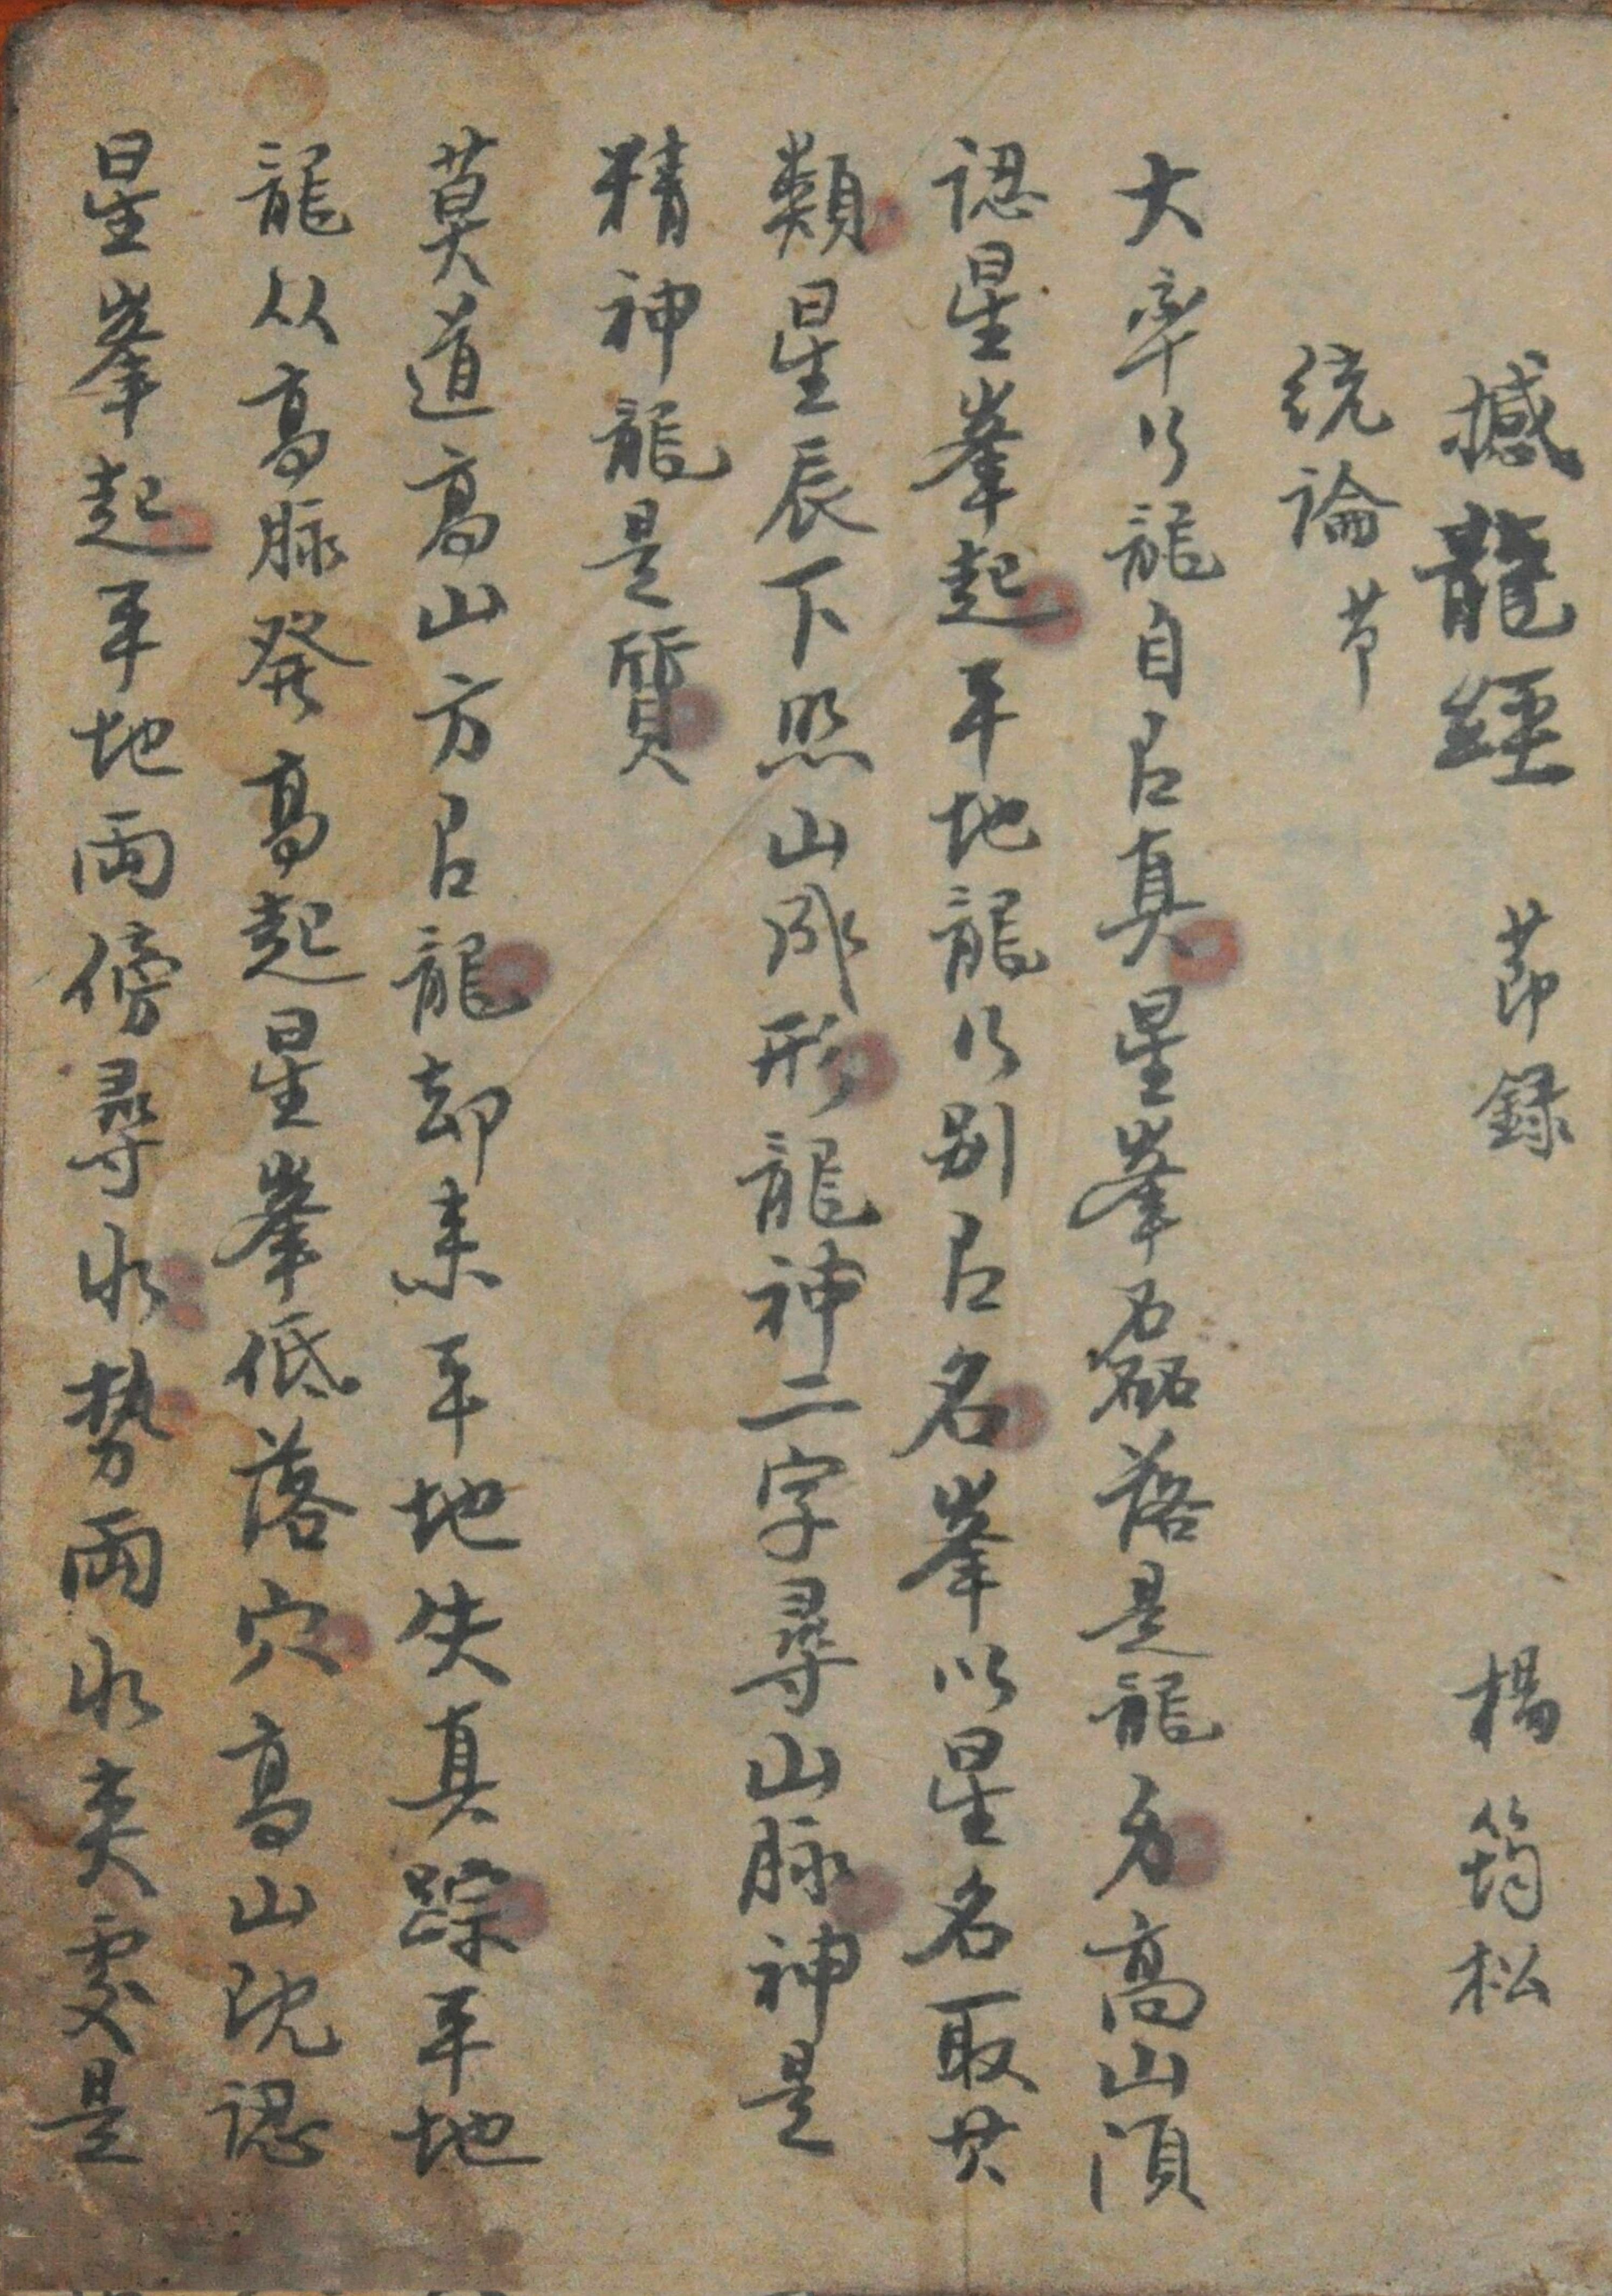 撼龍經 節録 楊筠松
統論节
大率行龍自有真星峯磊落是龍身高山須
認星峯起平地龍行别有名峯以星名取其
類星辰下照山成形龍神二字尋山脉神是
精神龍是質
莫道高山方有龍却来平地失真踪平地
龍从高脉發高起星峯低落穴高山既認
星峯起平地兩傍尋水勢兩水夾處是